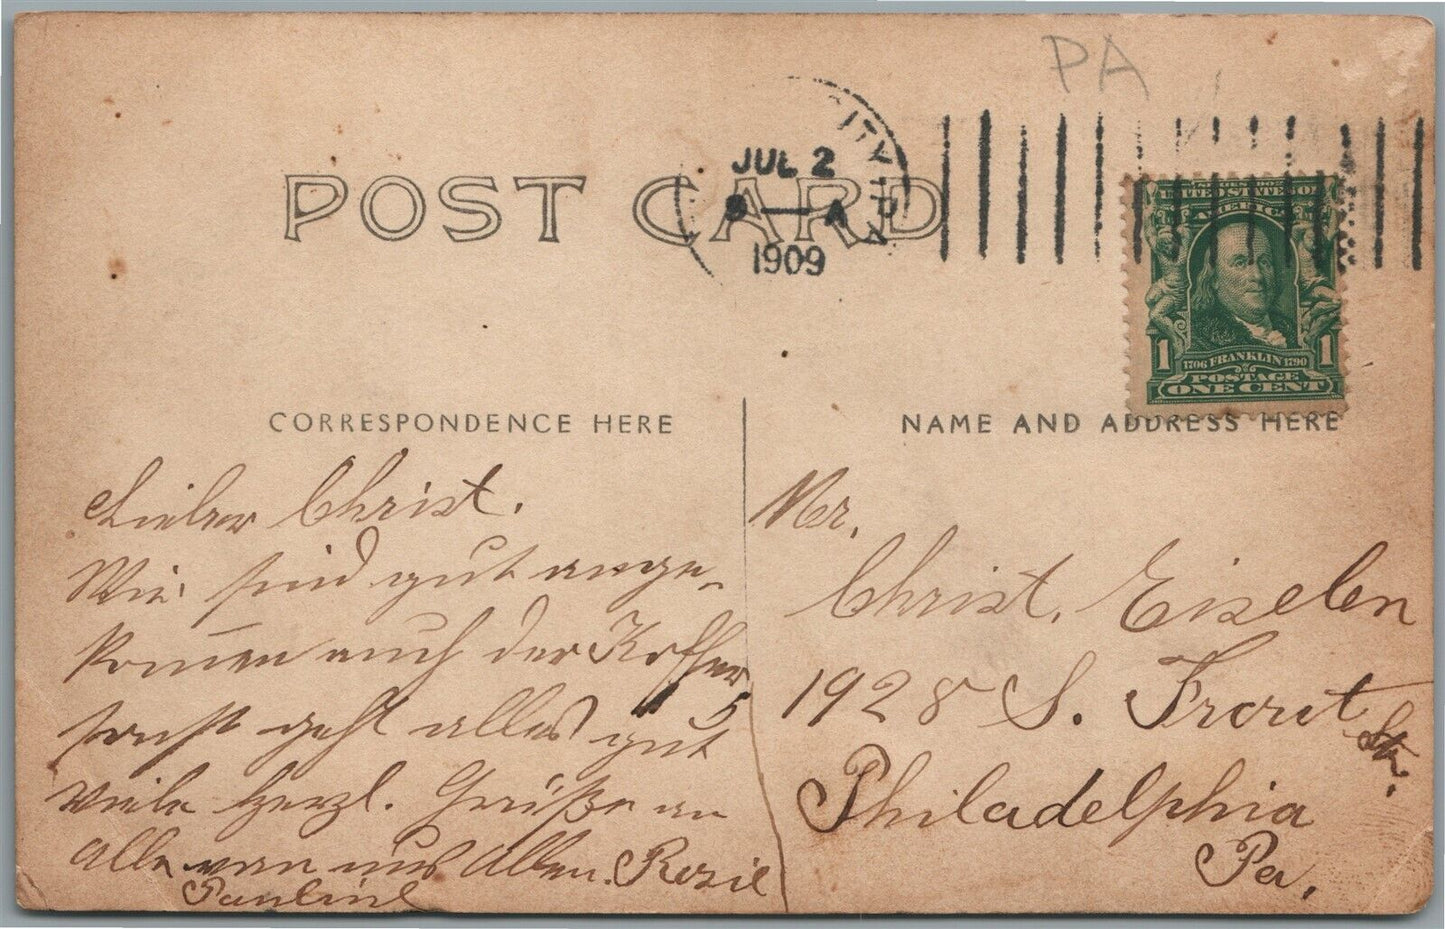 PA
POST CARD
CITY, PA
JUL 2
9 — A
1909
UNITED STATES OF
AMERICA
1 1
1706 FRANKLIN 1790
POSTAGE
ONE CENT
CORRESPONDENCE HERE
Lieber Christ.
Wir sind gut ange-
kom̄en auch der Koffer
sonst geht alles gut
Viele herzl. Grüße an
alle von uns Allen. Rosie
Pauline
NAME AND ADDRESS HERE
Mr.
Christ. Eiselen
1928 S. Front St.
Philadelphia
Pa.